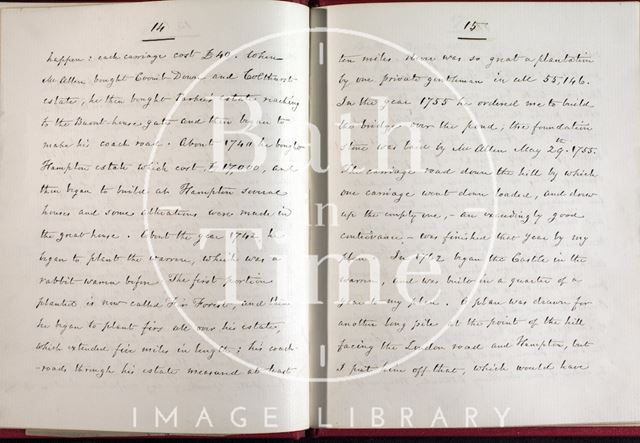 14
happen: each carriage cost £40. When
Mr Allen bought Coomb Down and Colthurst
estate, he then bought Parker's estate, reaching
to the Burnt-house gate and then began to
make his coach road. About 1740 he bought
Hampton estate which cost, and
then began to build at Hampton several
houses and some alterations were made in
the great house. About the year 1742 he
began to plant the warren, which was a
rabbit warren before. The first portion
planted is now called Fir Forest, and then
he began to plant firs all over his estates,
which extended five miles in length; his coach
-roads through his estate measured at least
15
ten miles. There was so great a plantation
by one private gentleman in all 55,146.
In the year 1755 he ordered me to build
the bridge over the pond; the foundation
stone was laid by Mr Allen May 29th. 1755.
The carriage road down the hill by which
one carriage went down loaded, and drew
up the empty one, - an exceedingly good
contrivance, - was finished that year by my
plan. In 1762 began the Castle in the
warren, and was built in a quarter of a
year to my plan. A plan was drawn for
another long pile at the point of the hill
facing the London road and Hampton, but
I put him off that, which would have
Bath
in
Time
IMAGE LIBRARY